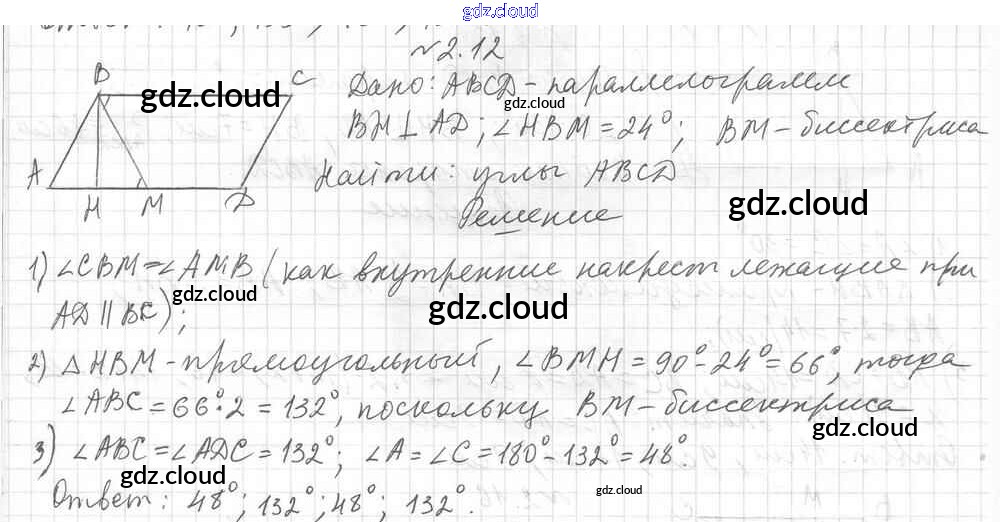 gdz.cloud
№2.12
B C
A H M D
Дано: ABCD - параллелограмм
gdz.cloud
gdz.cloud
BH ⊥ AD; ∠HBM = 24°; BM - биссектриса
Найти: углы ABCD
gdz.cloud
Решение
1) ∠CBM = ∠AMB (как внутренние накрест лежащие при
gdz.cloud
gdz.cloud
AD || BC);
2) △HBM - прямоугольный, ∠BMH = 90° - 24° = 66°, тогда
∠ABC = 66°·2 = 132°, поскольку BM - биссектриса
gdz.cloud
3) ∠ABC = ∠ADC = 132°; ∠A = ∠C = 180° - 132° = 48°.
gdz.cloud
Ответ: 48°; 132°; 48°; 132°.
gdz.cloud